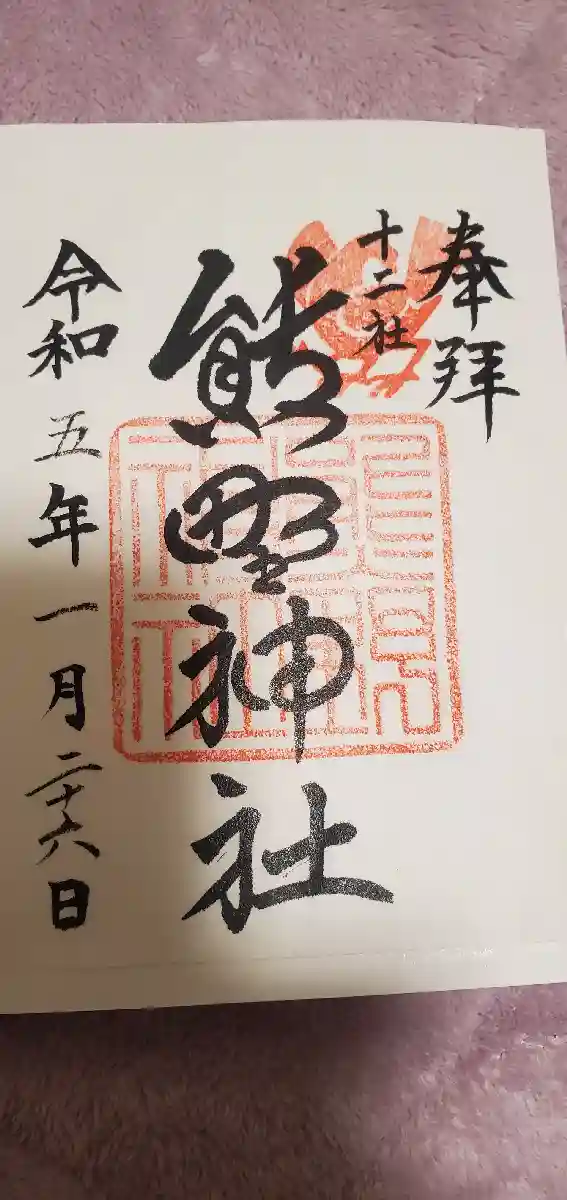 奉拝
十二社
熊野神社
令和五年一月二十六日